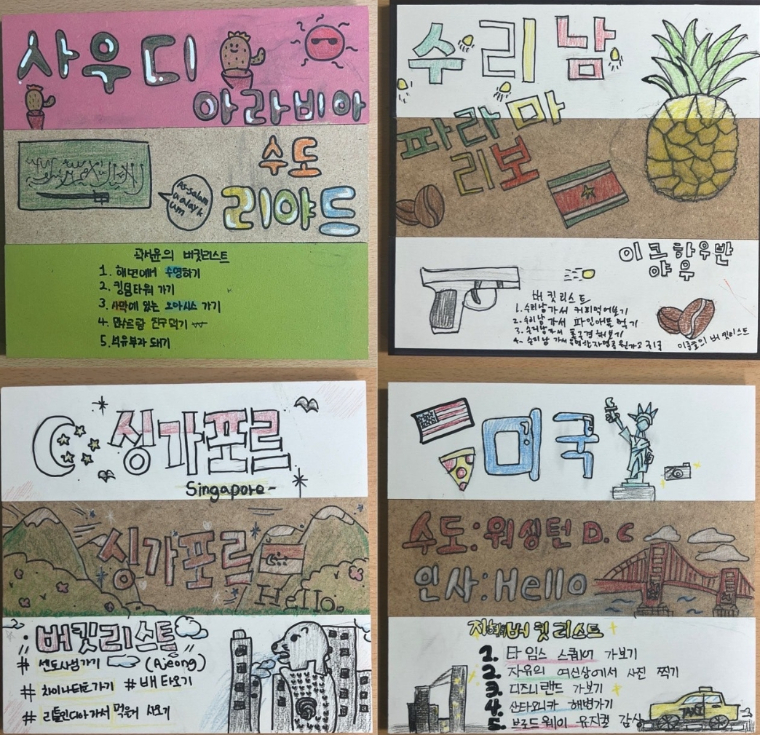 사우디
아라비아
수도
리야드
As-Salam
u alayk
um
곽서윤의 버킷리스트
1. 해변에서 수영하기
2. 킹덤타워 가기
3. 사막에 있는 오아시스 가기
4. 만수르랑 친구먹기
5. 석유부자 돼기
수리남
파라마
리보
버킷리스트
1. 수리남가서 커피먹어보기
2. 수리남 가서 파인애플 먹기
3. 수리남가서
4. 수리남 가서
싱가포르
Singapore~
싱가포르
Hello.
버킷리스트
# 센토사섬가기 (Ajeong)
# 차이나타운가기 # 배 타오기
# 리틀인디아가서 먹을거 사오기
미국
수도:워싱턴 D.C
인사:Hello
버킷리스트
1. 타임스 스퀘어 가보기
2. 자유의 여신상에서 사진 찍기
3. 디즈니랜드 가보기
4. 산타모니카 해변가기
5. 브로드웨이 뮤지컬 감상
TAXI